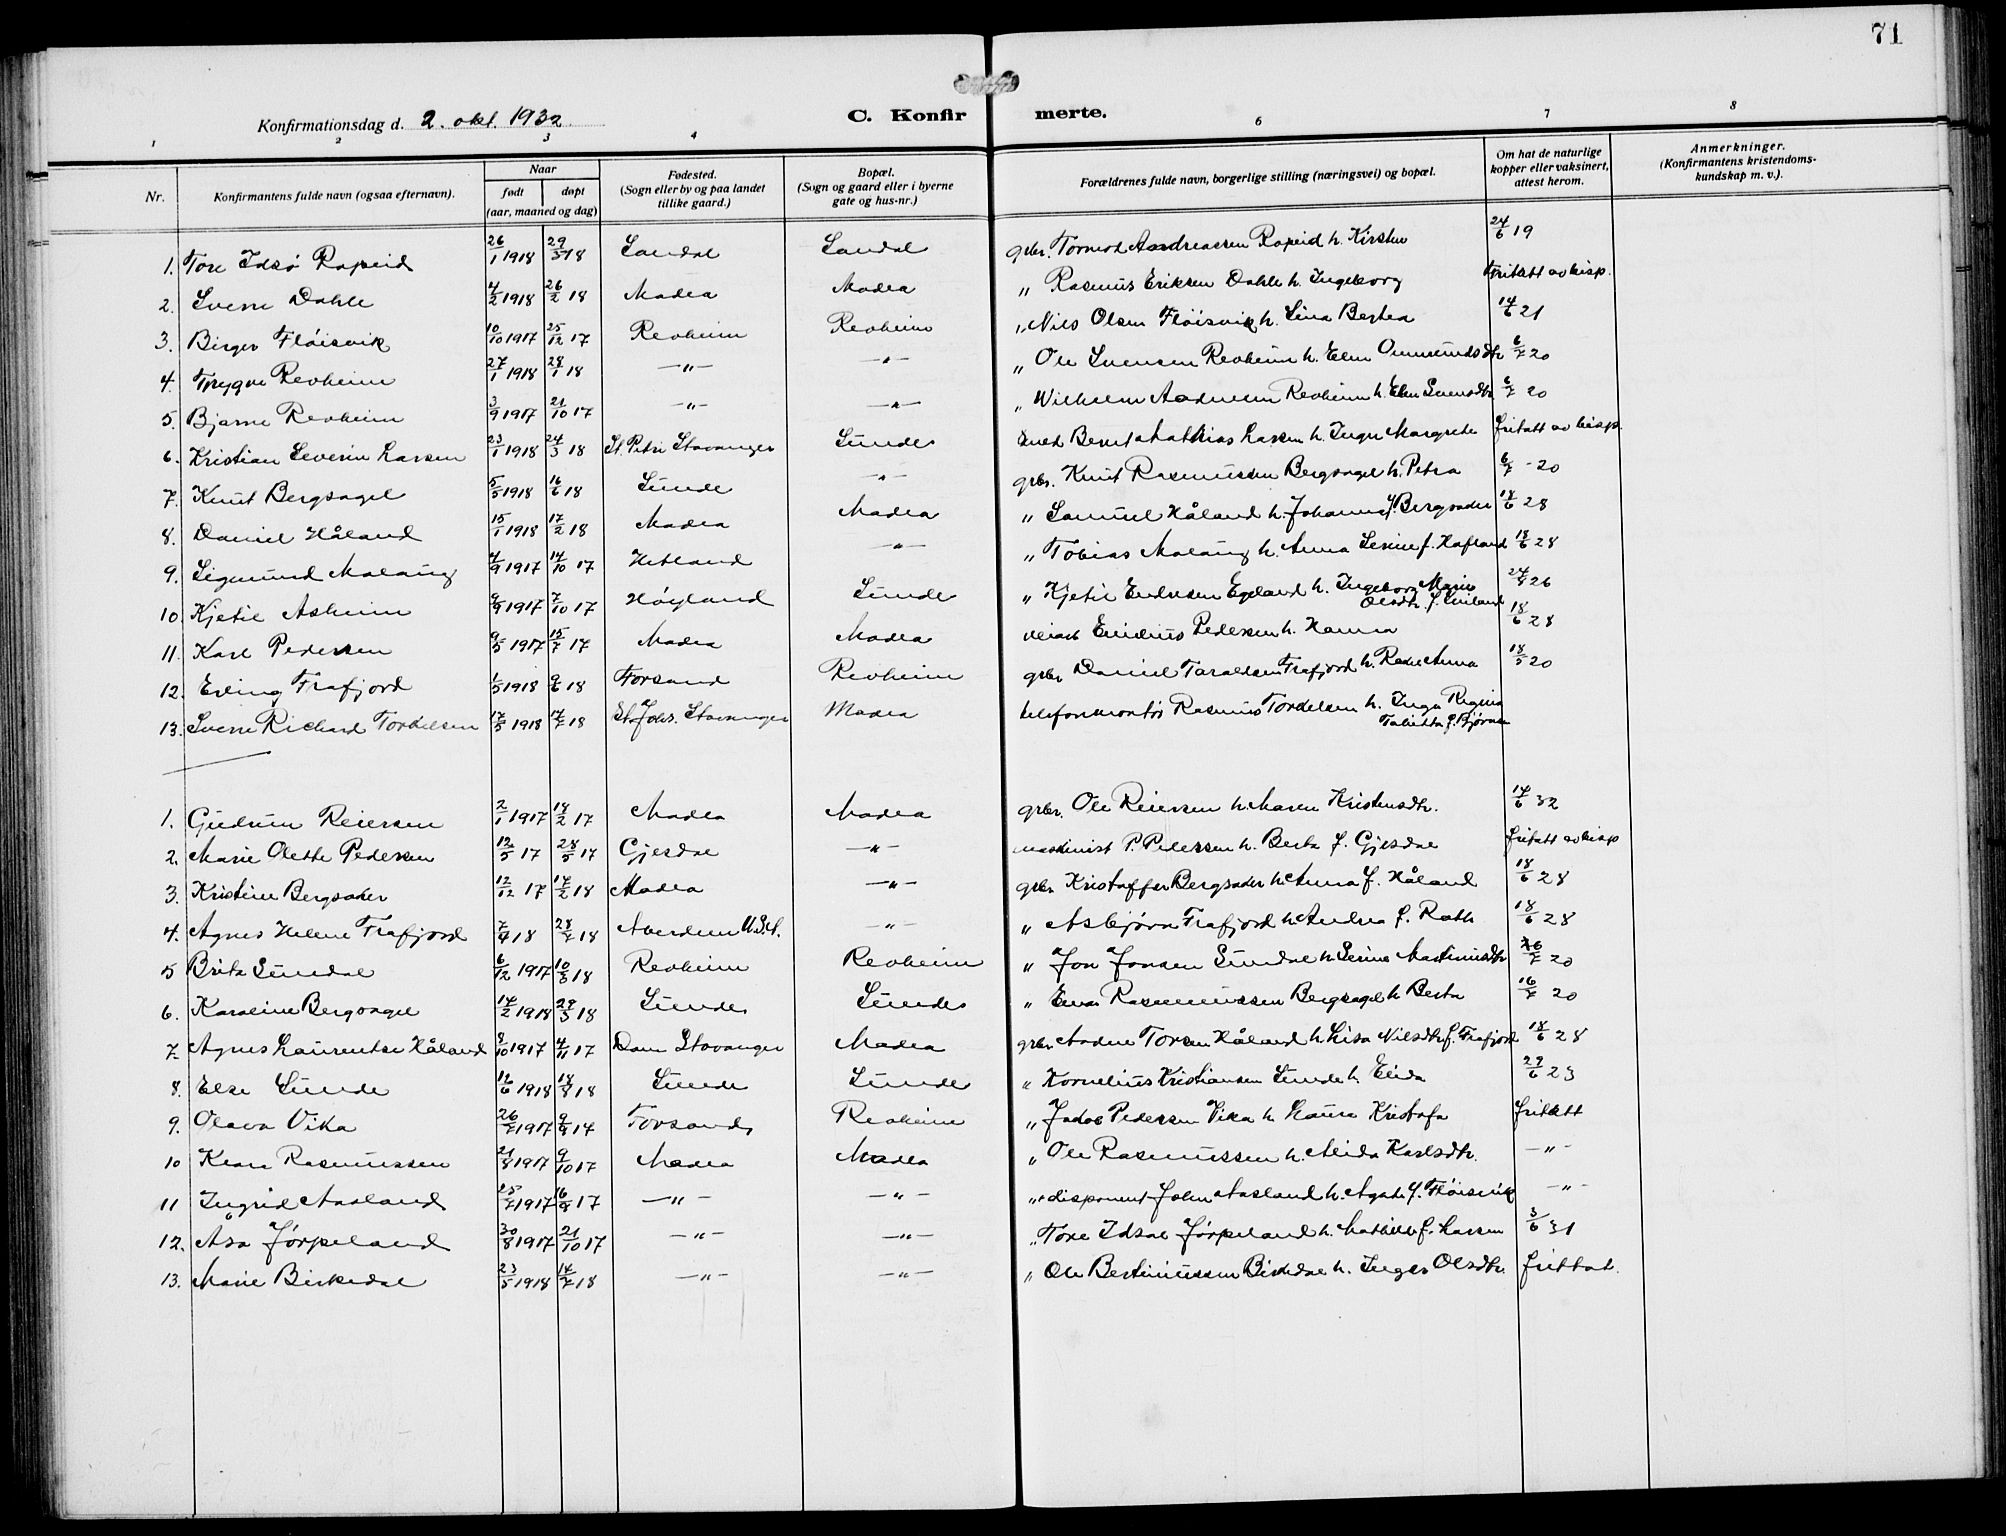 71
Konfirmationsdag d. 2. okt. 1932
C. Konfirmerte.
1 2 3 4 6 7 8
Nr. Konfirmantens fulde navn (ogsaa efternavn). Naar født døpt (aar, maaned og dag) Fødested. (Sogn eller by og paa landet tillike gaard.) Bopæl. (Sogn og gaard eller i byerne gate og hus-nr.) Forældrenes fulde navn, borgerlige stilling (næringsvei) og bopæl. Om hat de naturlige kopper eller vaksinert, attest herom. Anmerkninger. (Konfirmantens kristendomskundskap m. v.).
1. Tore Idsø Rapeid 26/1 1918 29/3 18 Sandal Sandal grbr. Tormod Andreassen Rapeid h. Kirsten 24/6 19
2. Sverre Dahle 4/2 1918 26/2 18 Madla Madla " Rasmus Eriksen Dahle h. Ingeborg fritatt av bisp.
3. Birger Fløisvik 10/10 1917 25/12 17 Revheim Revheim " Nils Olsen Fløisvik h. Lina Bertea 14/6 21
4. Trygve Revheim 27/1 1918 28/1 18 —"— —"— " Ole Svensen Revheim h. Elen Ommundsdtr 6/7 20
5. Bjarne Revheim 3/9 1917 21/10 17 —"— —"— " Wilhelm Aadnesen Revheim h. Elen Svensdtr 6/7 20
6. Kristian Severin Larsen 23/1 1918 24/3 18 St. Petri Stavanger Sunde Bernt Mathias Larsen h. Inger Margrete fritatt av bisp.
7. Knut Bergsagel 5/5 1918 16/6 18 Sunde —"— grbr. Knut Rasmussen Bergsagel h. Petra 6/7 - 20
8. Daniel Håland 15/1 1918 17/2 18 Madla Madla " Samuel Håland h. Johanne f. Bergsaker 18/6 28
9. Sigmund Malaug 4/9 1917 14/10 17 Hetland —"— " Tobias Malaug h. Anna Serine f. Hafland 18/6 28
10. Kjetil Asheim 9/9 1917 7/10 17 Høyland Sunde " Kjetil Endresen Egeland h. Ingeborg Marie Olsdtr. 24/8 26
11. Karl Pedersen 9/5 1917 15/7 17 Madla Madla Pedersen h. Hanna 18/6 28
12. Erling Frafjord 1/5 1918 9/6 18 Forsand Revheim grbr Daniel Taraldsen Frafjord h. Anna 18/5 20
13. Sverre Richard Torkelsen 17/5 1918 14/7 18 St. Johs. Stavanger Madla telefonmontør Rasmus Torkelsen h. Inga Regina Tabitta f. Bjørnsen
1. Gudrun Reiersen 2/1 1917 18/2 17 Madla Madla grbr. Ole Reiersen h. Maren Kristensdtr. 14/6 32
2. Marie Olette Pedersen 12/5 17 28/5 17 Gjesdal —"— maskinist P. Pedersen h. Berta f. Gjesdal fritatt av bisp
3. Kristine Bergsaker 12/12 17 17/2 18 Madla —"— grbr Kristoffer Bergsaker h. Anna f. Håland 18/6 28
4. Agnes Helene Frafjord 7/4 18 28/7 18 Aberdeen U.S.A. —"— " Asbjørn Frafjord h. Andrea f. Roth 18/6 28
5 Brita Sundal 6/12 1917 10/3 18 Revheim Revheim " Jon Jonsen Sundal h. Serine Martinusdtr 20
6. Karoline Bergsagel 14/2 1918 28/3 18 Sunde Sunde " Rasmussen Bergsagel h. Berta 16/7 20
7. Agnes Laurentse Håland 8/10 1917 4/11 17 Dom Stavanger Madla grbr. Aadne Torsen Håland h. Lisa Nilsdtr. f. Frafjord 18/6 28
8. Else Sunde 12/6 1918 18/8 18 Sunde Sunde " Kornelius Kristiansen Sunde h. Elida 27/6 23
9. Olava Vika 26/7 1917 9/9 17 Forsand Revheim " Jakob Pedersen Vika h. Laura Kristofa fritatt
10 Klara Rasmussen 21/8 1917 9/10 17 Madla Madla " Ole Rasmussen h. Alida Karlsdtr. —"—
11 Ingrid Aasland 25/7 1917 16/9 17 —"— —"— " disponent John Aasland h. Agate f. Fløisvik —"—
12. Asa Jørpeland 30/8 1917 21/10 17 —"— —"— " Tore Idsal Jørpeland h. Mathilde f. Larsen 3/6 31
13. Marie Birkedal 23/5 1918 14/7 18 —"— —"— " Ole Bertinussen Birkedal h. Inger Olsdtr. frittat.